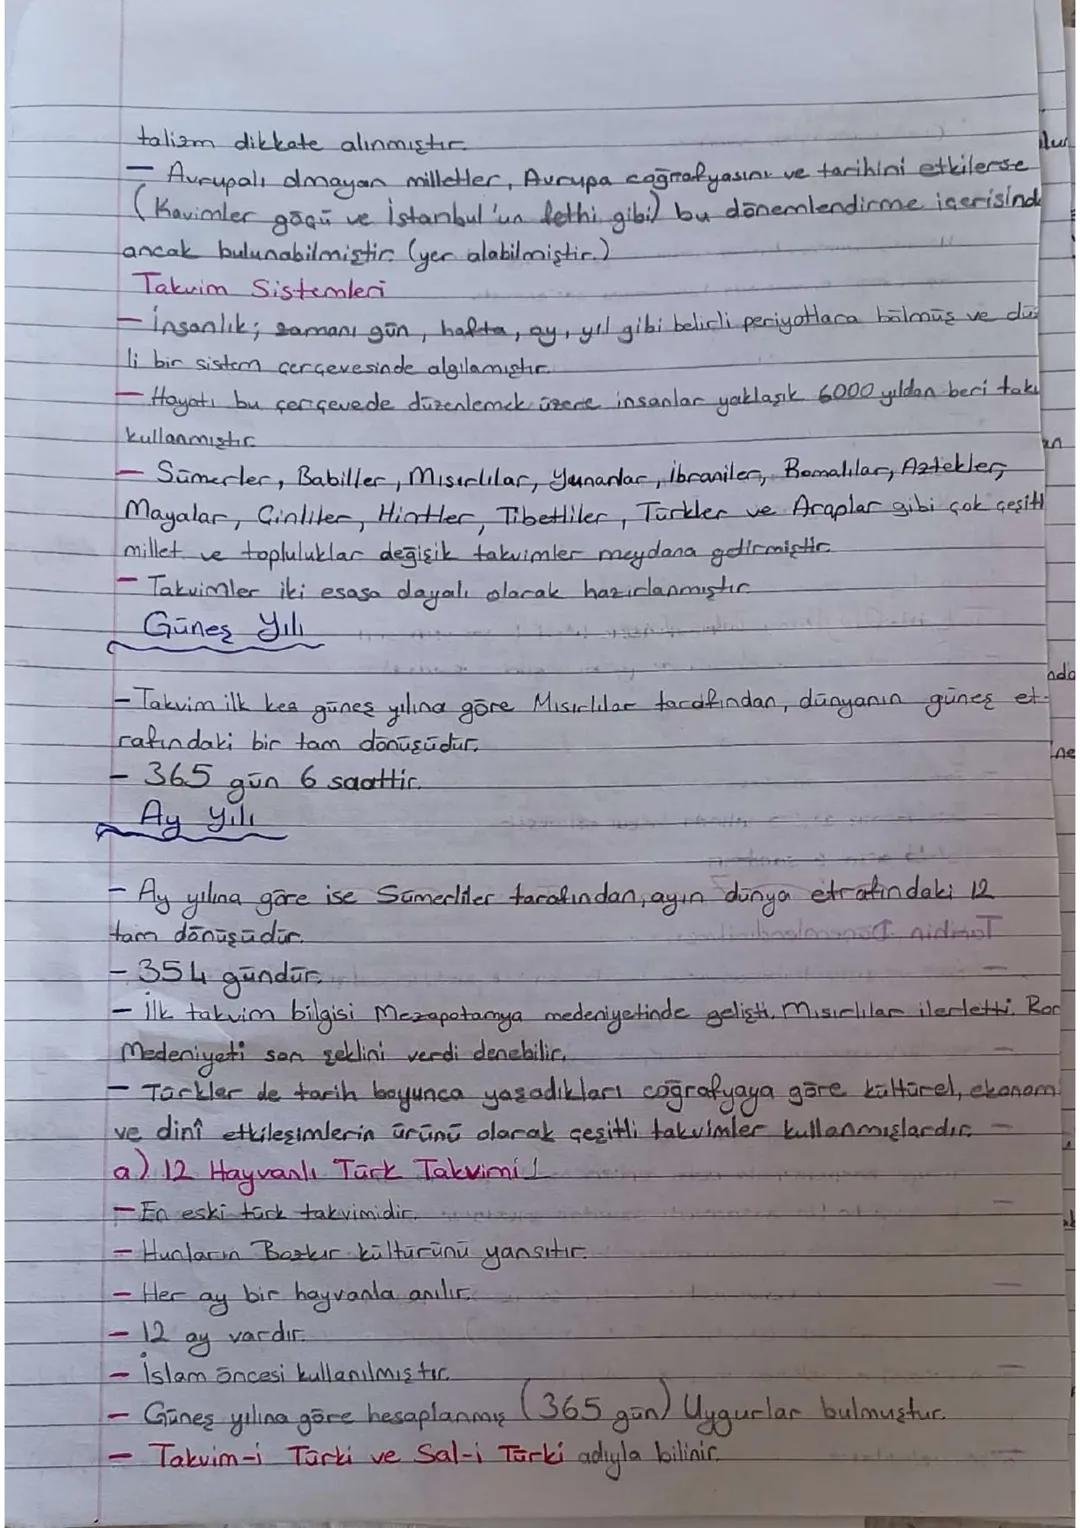 talizm dikkate alınmıştır.
— Avrupalı olmayan milletler, Avrupa coğrafyasını ve tarihini etkilerse
(Kavimler göçü ve İstanbul'un fethi gibi) bu dönemlendirme içerisind
ancak bulunabilmiştir. (yer alabilmiştir.)
Takvim Sistemleri
— İnsanlık; zamanı gün, hafta, ay, yıl gibi belirli periyotlara bölmüş ve dü
li bir sistem çerçevesinde algılamıştır.
— Hayatı bu çerçevede düzenlemek üzere insanlar yaklaşık 6000 yıldan beri takv
kullanmıştır.
— Sümerler, Babiller, Mısırlılar, Yunanlar, İbraniler, Romalılar, Aztekler,
Mayalar, Çinliler, Hintler, Tibetliler, Türkler ve Araplar gibi çok çeşitl
millet ve topluluklar değişik takvimler meydana getirmiştir.
— Takvimler iki esasa dayalı olarak hazırlanmıştır.
Güneş Yılı
— Takvim ilk kez güneş yılına göre Mısırlılar tarafından, dünyanın güneş et-
rafındaki bir tam dönüşüdür.
— 365 gün 6 saattir.
Ay Yılı
— Ay yılına göre ise Sümerliler tarafından, ayın dünya etrafındaki 12
tam dönüşüdür.
— 354 gündür.
— İlk takvim bilgisi Mezapotamya medeniyetinde gelişti. Mısırlılar ilerletti. Ro
Medeniyeti son şeklini verdi denebilir.
— Türkler de tarih boyunca yaşadıkları coğrafyaya göre kültürel, ekonom
ve dinî etkileşimlerin ürünü olarak çeşitli takvimler kullanmışlardır.
a) 12 Hayvanlı Türk Takvimi!
— En eski türk takvimidir.
— Hunların Bozkır kültürünü yansıtır.
— Her ay bir hayvanla anılır.
— 12 ay vardır.
— İslam öncesi kullanılmıştır.
— Güneş yılına göre hesaplanmış (365 gün) Uygurlar bulmuştur.
— Takvim-i Türki ve Sal-i Türki adıyla bilinir.